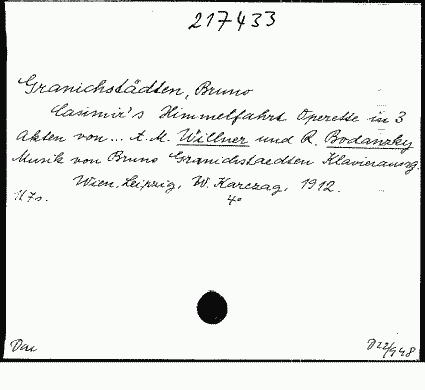 217433
Granichstädten, Bruno
Casimir's Himmelfahrt Operette in 3
Akten von... A. M. Willner und R. Bodanzky
Musik von Bruno Granichstaedten Klavierausg.
Wien, Leipzig, W. Karczag, 1912.
117s. 4°
Dar
D22/948